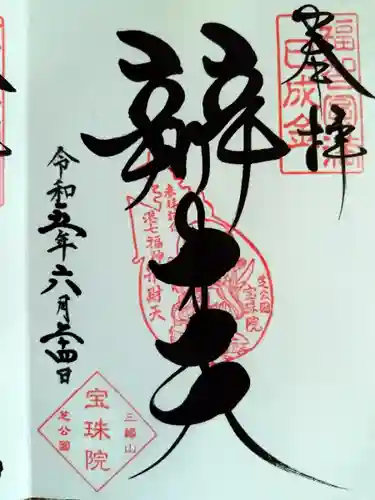 奉拝
辯才天
令和五年六月二十四日
日成金
港七福神
弁財天
芝公園
宝珠院
三縁山
宝珠院
芝公園